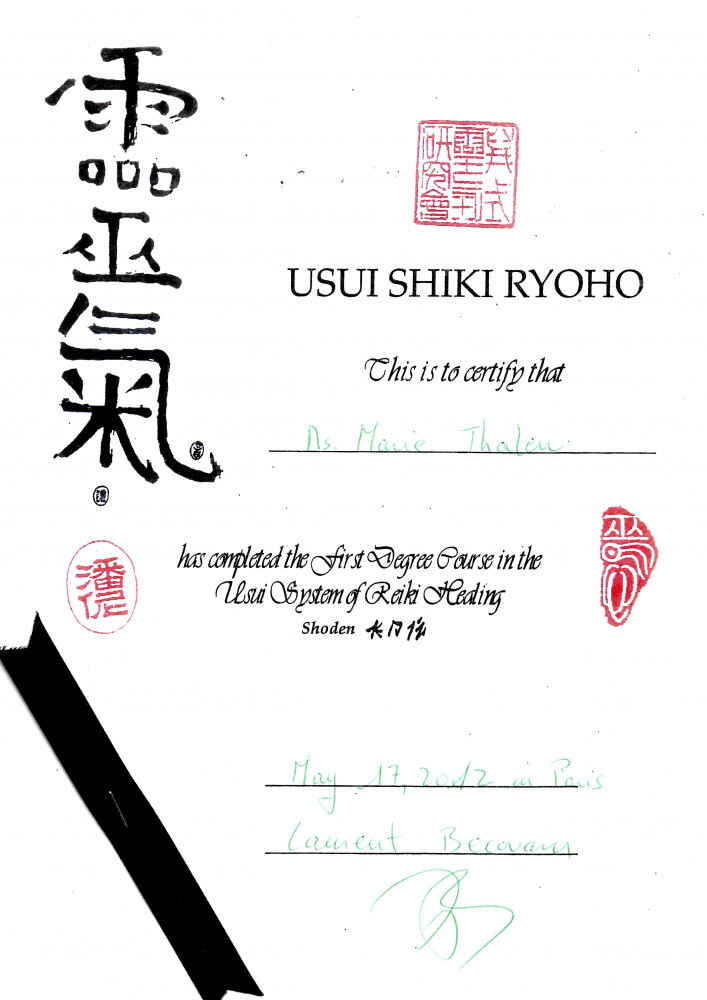 靈氣
USUI SHIKI RYOHO
This is to certify that
Ms. Marie Thalen
has completed the First Degree Course in the
Usui System of Reiki Healing
Shoden
May 17, 2012 in Paris
Laurent